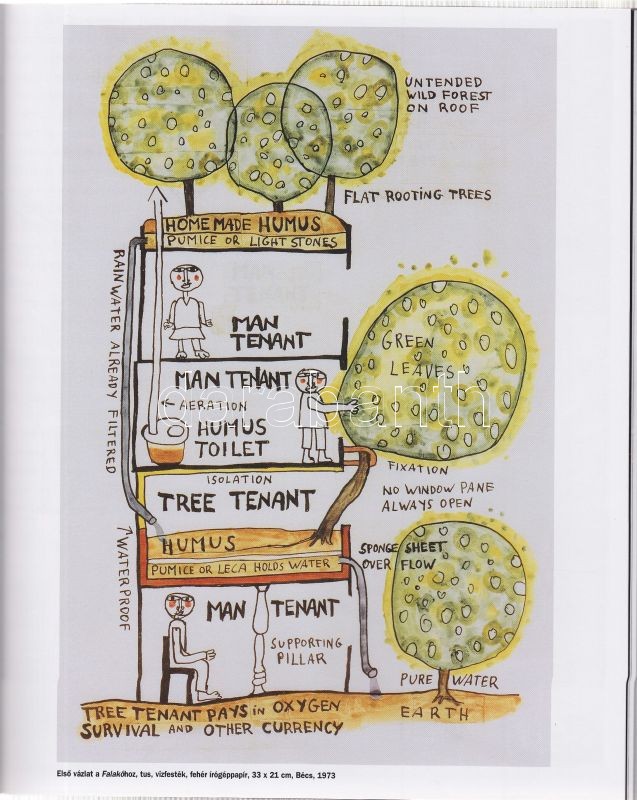 UNTENDED
WILD FOREST
ON ROOF
FLAT ROOTING TREES
HOME MADE HUMUS
PUMICE OR LIGHT STONES
RAINWATER ALREADY FILTERED
MAN
TENANT
GREEN
LEAVES
MAN TENANT
← AERATION
HUMUS
TOILET
darabanth
FIXATION
NO WINDOW PANE
ALWAYS OPEN
ISOLATION
TREE TENANT
HUMUS
PUMICE OR LECA HOLDS WATER
SPONGE SHEET
OVER FLOW
↑WATERPROOF
MAN TENANT
SUPPORTING
PILLAR
PURE WATER
EARTH
TREE TENANT PAYS in OXYGEN
SURVIVAL AND OTHER CURRENCY
Első vázlat a Falakóhoz, tus, vízfesték, fehér írógéppapír, 33 x 21 cm, Bécs, 1973